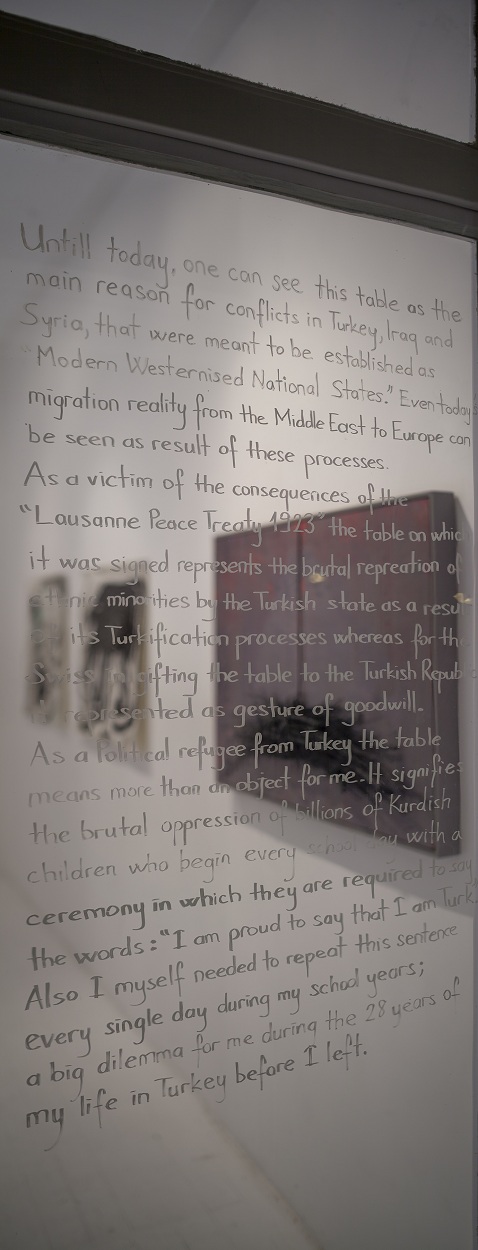 Untill today, one can see this table as the
main reason for conflicts in Turkey, Iraq and
Syria, that were meant to be established as
"Modern Westernised National States." Even today
migration reality from the Middle East to Europe can
be seen as result of these processes.
As a victim of the consequences of the
"Lausanne Peace Treaty 1923" the table on whic
it was signed represents the brutal repreation of
ethnic minorities by the Turkish state as a resu
of its Turkification processes whereas for the
Swiss in gifting the table to the Turkish Repub
represented as gesture of goodwill.
As a Political refugee from Turkey the table
means more than an object for me. It signifies
the brutal oppression of billions of Kurdish
children who begin every school day with a
ceremony in which they are required to say
the words: "I am proud to say that I am Turk
Also I myself needed to repeat this sentence
every single day during my school years;
a big dilemma for me during the 28 years of
my life in Turkey before I left.